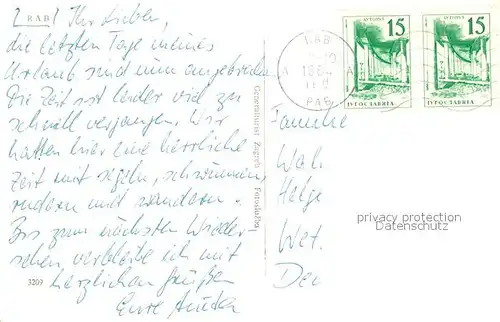 RAB
Ihr Lieben,
die letzten Tage meines
Urlaub sind nun angebrochen
Die Zeit ist leider viel zu
schnell vergangen. Wir
hatten hier eine herrliche
Zeit mit segeln, schwimmen,
rudern und wandern.
Bis zum nächsten Wieder-
sehen verbleibe ich mit
herzlichen Grüßen
Eure
3209
Generalturist Zagreb Fotoslužba
RAB
196
RAB
15
JUGOSLAVIJA
15
JUGOSLAVIJA
Familie
Wal
Helge
Wet.
Deu
privacy protection
Datenschutz